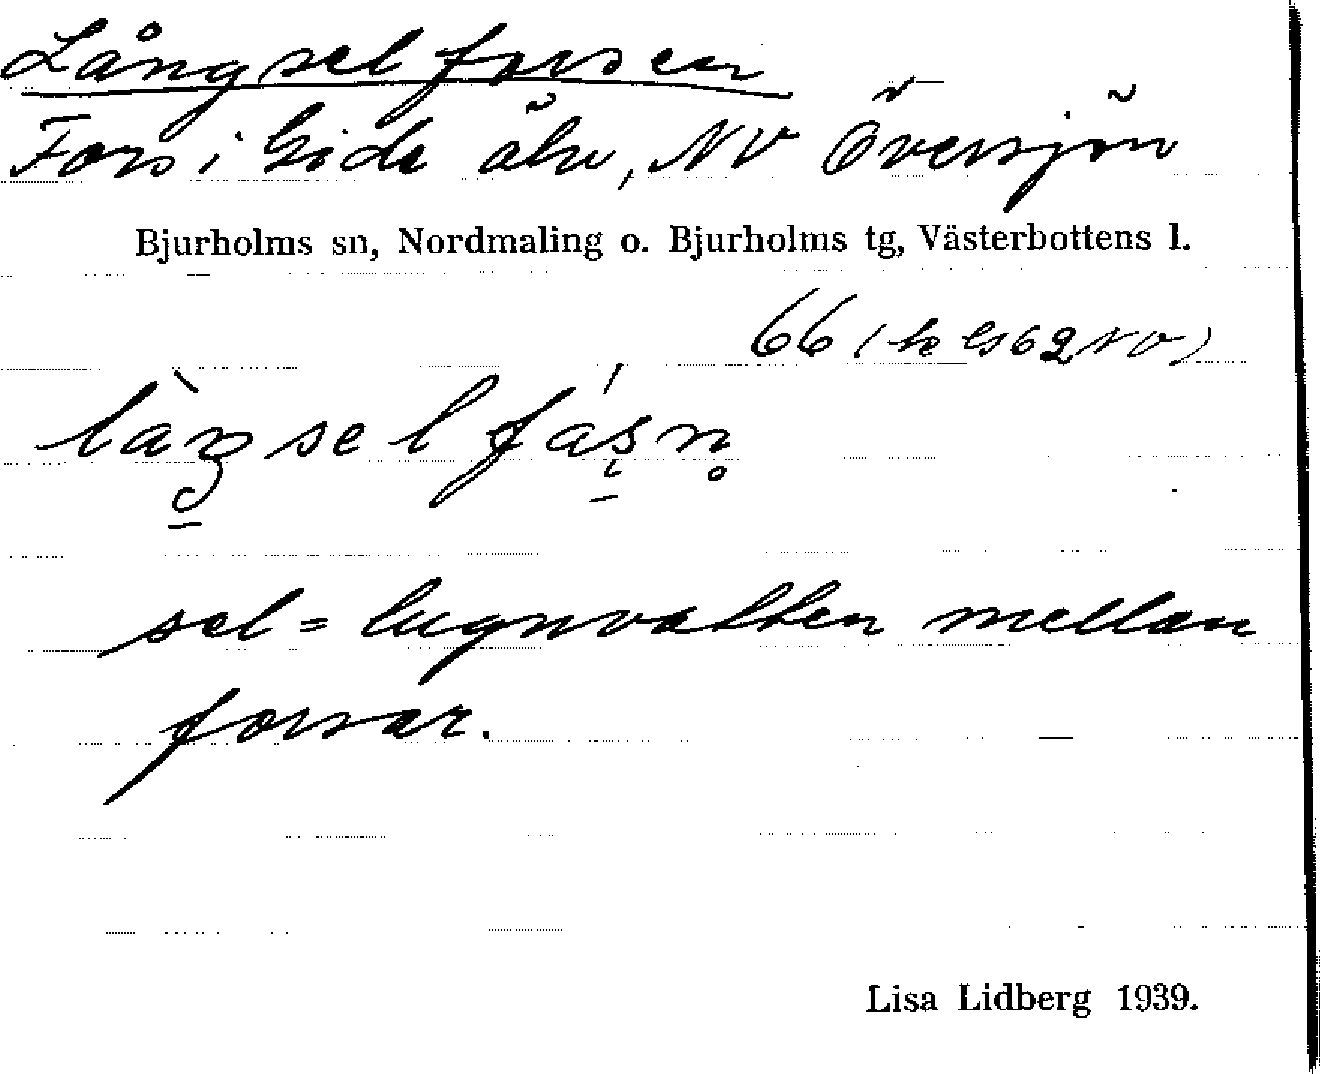 Långselforsen
Fors i Gide älv, NV Översjön
Bjurholms sn, Nordmaling o. Bjurholms tg, Västerbottens l.
66 (k bl 62 NV)
làŋselfáʂn̥
sel = lugnvatten mellan
forsar.
Lisa Lidberg 1939.